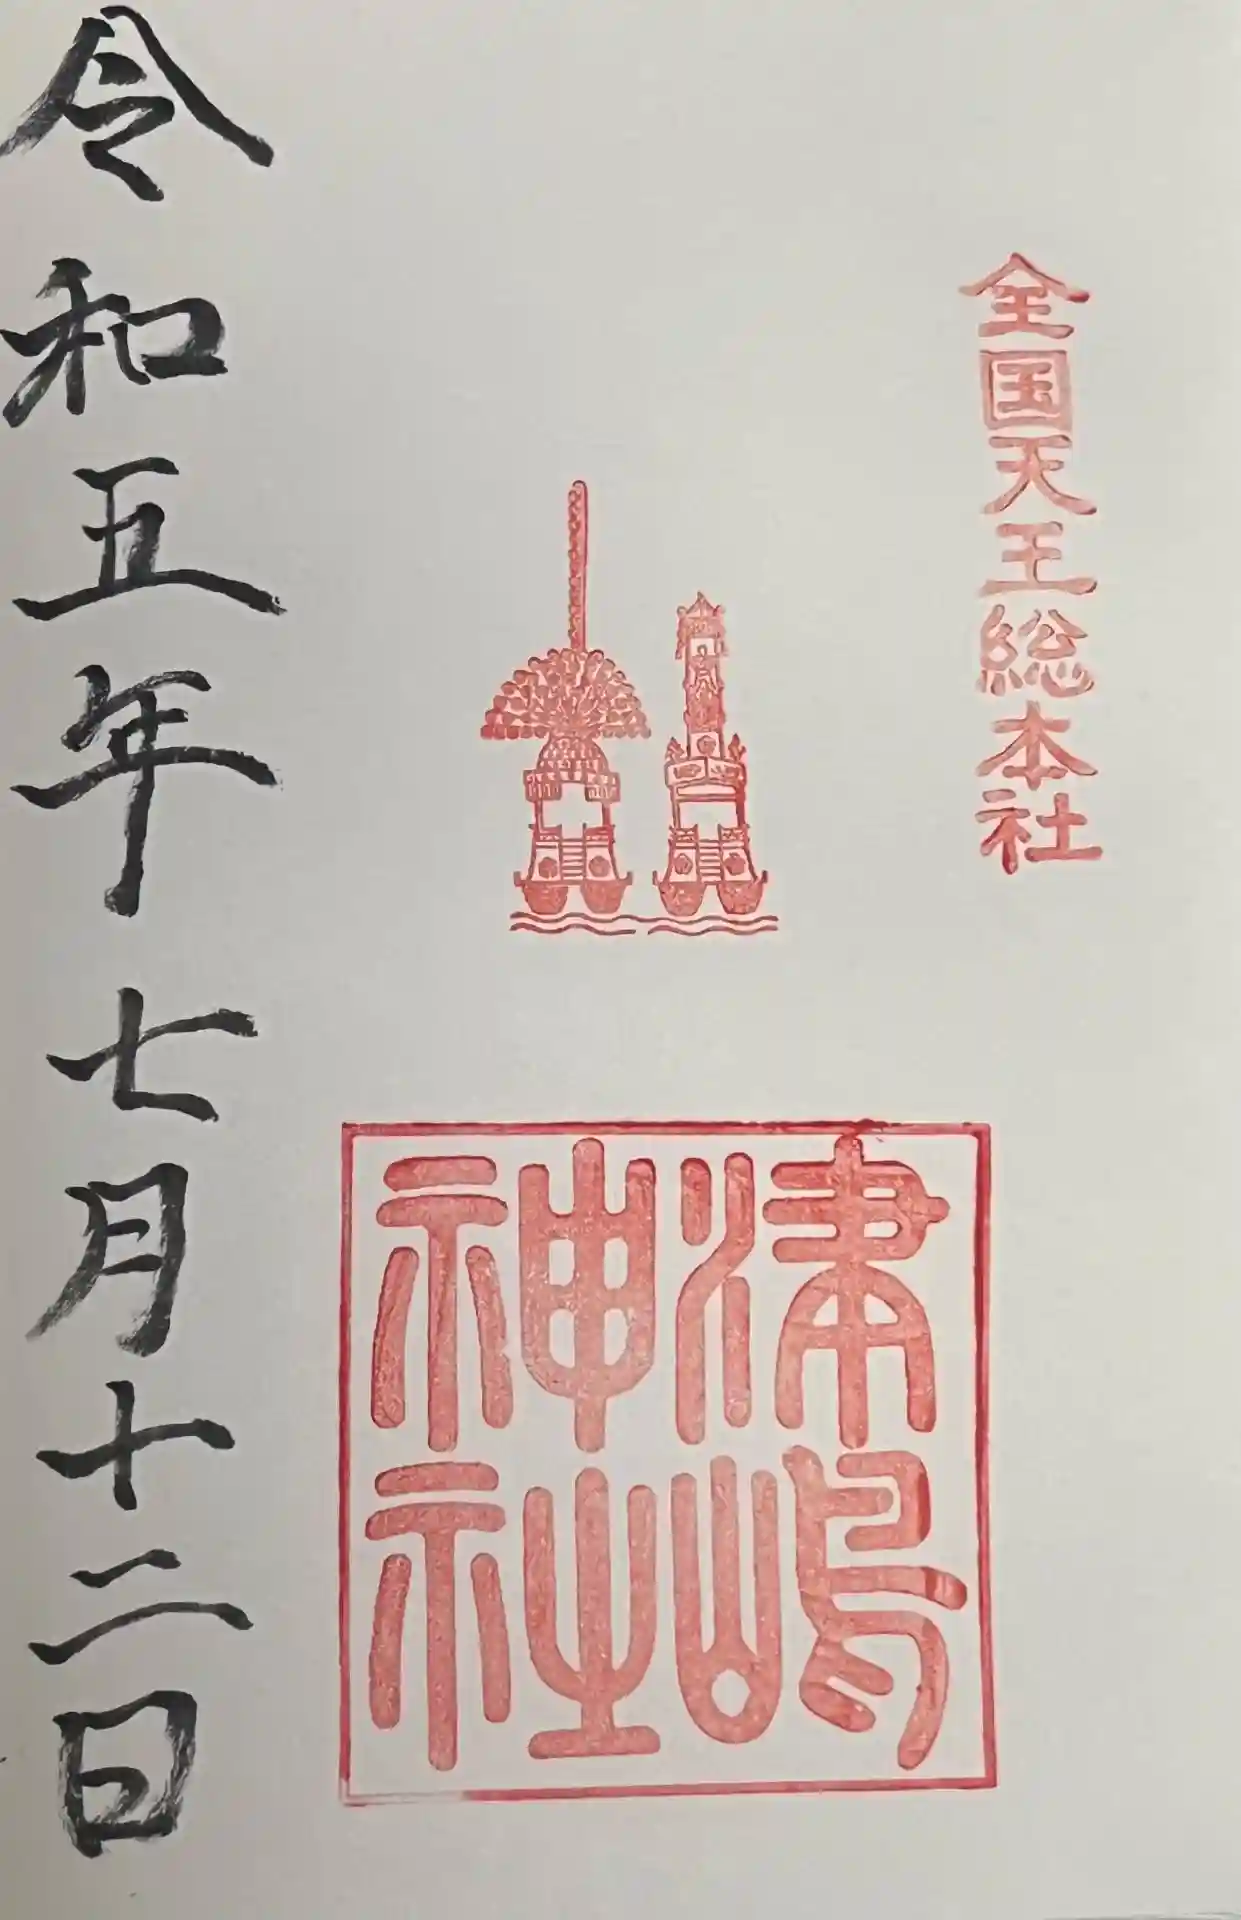 全国天王総本社
津嶋
神社
令和五年七月十二日